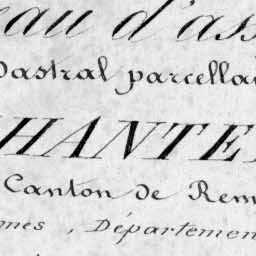 eau d'ass
Castral parcella
HANTE
Canton de Rem
nes, Département